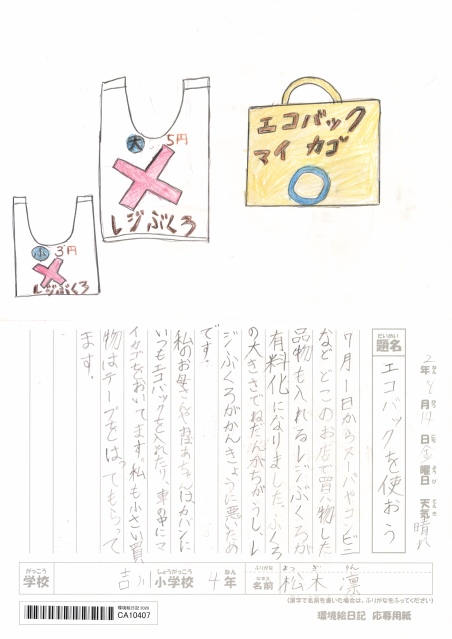 大 5円
レジぶくろ
小 3円
レジぶくろ
エコバック
マイ カゴ
2年8月14日金曜日 天気 晴れ
ねん がつ にち ようび てんき
だいめい
題名
エコバックを使おう
7月1日からスーパやコンビニ
など どこのお店で買い物した
品物も入れるレジぶくろが
有料化になりました。ふくろ
の大きさでねだんがちがうし、レ
ジぶくろがかんきょうに悪いため
です。
私のお母さんやおばあちゃんはカバンに
いつもエコバックを入れたり、車の中にマ
イカゴをおいてます。私も小さい買
物はテープをはってもらって
ます。
がっこう
学校
吉川小学校 4年
しょうがっこう ねん
ふりがな まつ ぎ りん
なまえ
名前 松木 凛
(漢字で名前を書いた場合は、ふりがなをふってください)
環境絵日記 応募用紙
環境絵日記2020
CA10407